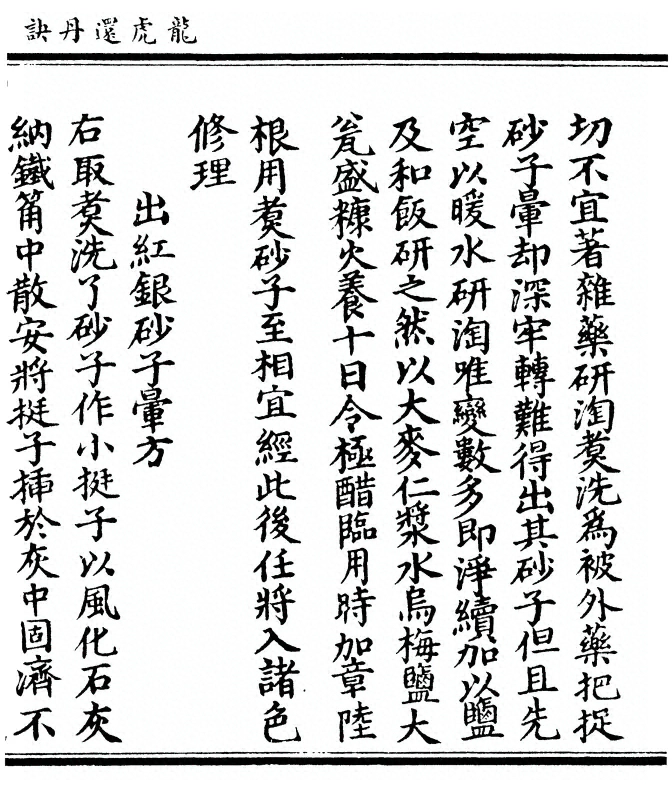 龍虎還丹訣
切不宜著雜藥研淘煑洗爲被外藥把捉
砂子暈却深牢轉難得出其砂子但且先
空以暖水研淘唯變數多即淨續加以鹽
及和飯研之然以大麥仁漿水烏梅鹽大
瓮盛糠火養十日令極醋臨用時加章陸
根用煑砂子至相宜經此後任將入諸色
修理
出紅銀砂子暈方
右取煑洗了砂子作小挺子以風化石灰
納鐵筩中散安將挺子揷於灰中固濟不